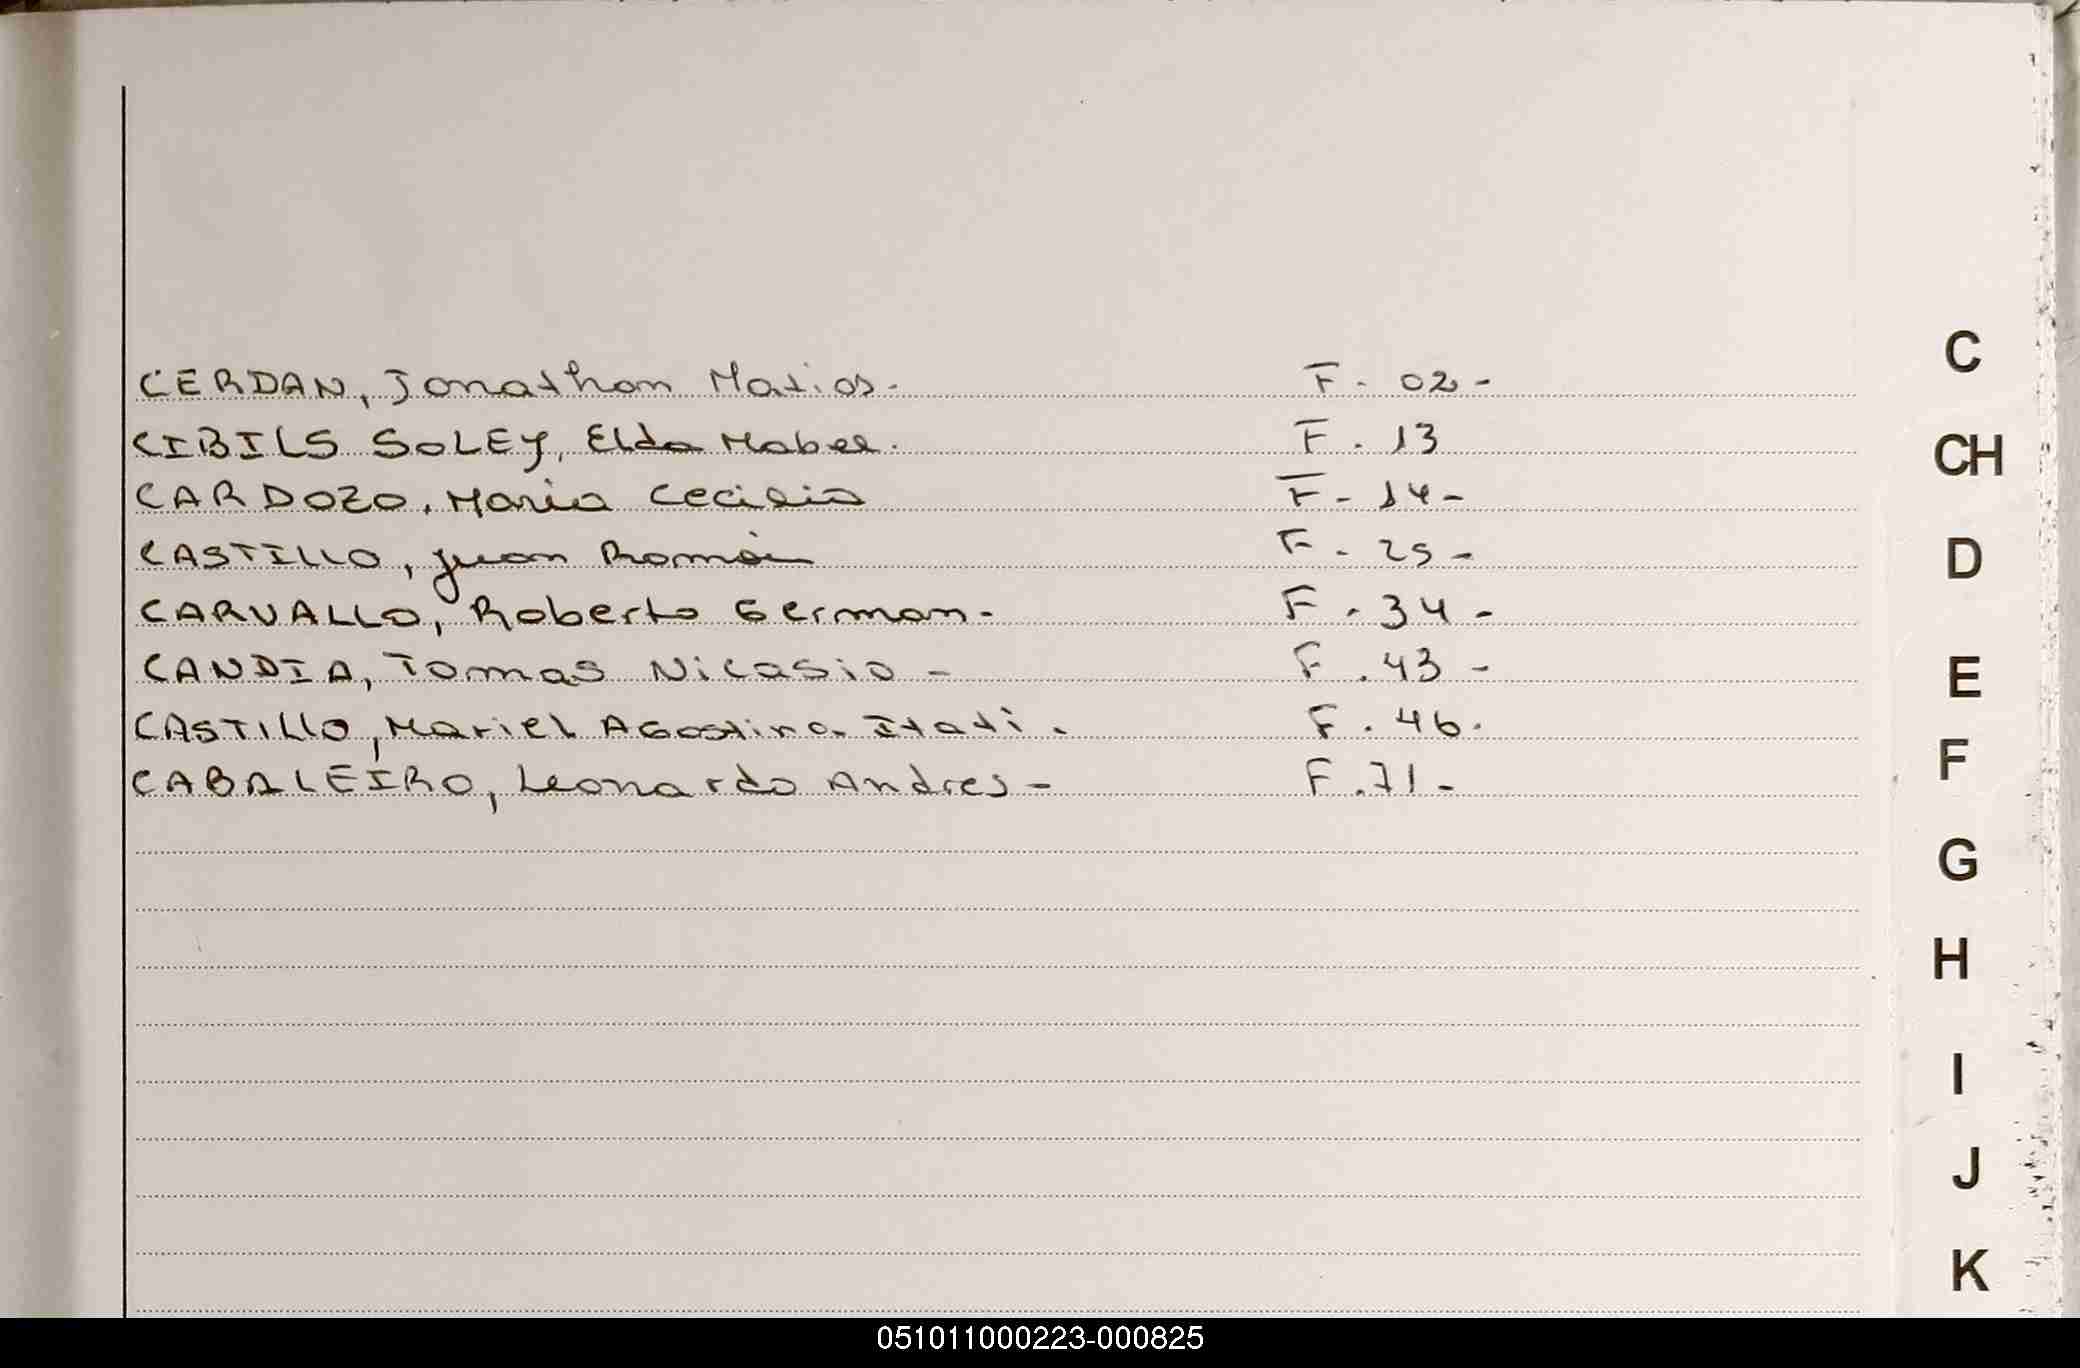 CERDAN, Jonathan Matias. F. 02-
CIBILS SOLEY, Elda Mabel. F. 13
CARDOZO, Maria Cecilia F-14-
CASTILLO, Juan Román F-25-
CARVALLO, Roberto German- F-34-
CANDIA, Tomas Nicasio- F.43-
CASTILLO, Mariel Agostina Itati. F.46.
CABALEIRO, Leonardo Andres- F.71-
C
CH
D
E
F
G
H
I
J
K
051011000223-000825